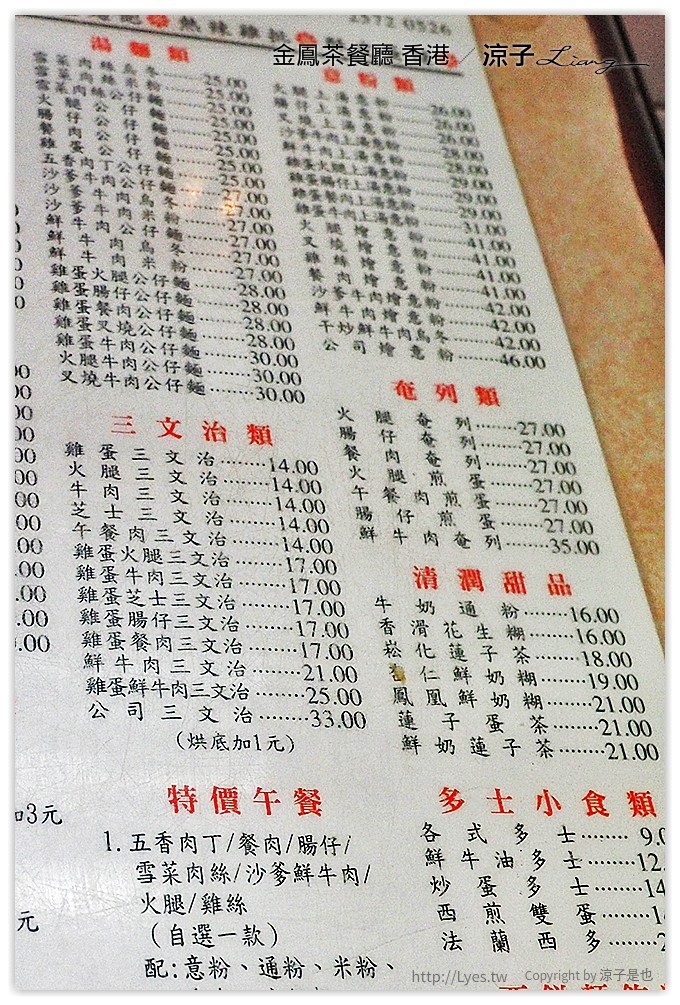 2572 0526
金鳳茶餐廳 香港 / 涼子 Liang
湯麵類
雪菜肉絲烏冬……25.00
雪菜肉絲公仔麵……25.00
火腿公仔麵……25.00
腸仔公仔麵……25.00
餐肉公仔麵……25.00
雞蛋公仔麵……25.00
五香肉丁公仔麵……27.00
沙爹牛肉公仔麵……27.00
鮮牛肉烏冬……27.00
鮮牛肉米粉……27.00
雞蛋火腿公仔麵……28.00
雞蛋腸仔公仔麵……28.00
雞蛋餐肉公仔麵……28.00
雞蛋叉燒公仔麵……28.00
雞蛋牛肉公仔麵……30.00
火腿牛肉公仔麵……30.00
叉燒牛肉公仔麵……30.00
意粉類
火腿上湯意粉……26.00
腸仔上湯意粉……26.00
叉燒上湯意粉……26.00
沙爹牛肉上湯意粉……28.00
鮮牛肉上湯意粉……28.00
雞蛋火腿上湯意粉……29.00
雞蛋腸仔上湯意粉……29.00
雞蛋餐肉上湯意粉……29.00
雞蛋牛肉上湯意粉……31.00
火腿燴意粉……41.00
叉燒燴意粉……41.00
雞絲燴意粉……41.00
餐肉燴意粉……41.00
沙爹牛肉燴意粉……42.00
鮮牛肉燴意粉……42.00
干炒鮮牛肉烏冬……42.00
公司燴意粉……46.00
三文治類
雞蛋三文治……14.00
火腿三文治……14.00
牛肉三文治……14.00
芝士三文治……14.00
午餐肉三文治……14.00
雞蛋火腿三文治……17.00
雞蛋牛肉三文治……17.00
雞蛋芝士三文治……17.00
雞蛋腸仔三文治……17.00
雞蛋餐肉三文治……17.00
鮮牛肉三文治……21.00
雞蛋鮮牛肉三文治……25.00
公司三文治……33.00
(烘底加1元)
奄列類
火腿奄列……27.00
腸仔奄列……27.00
餐肉奄列……27.00
火腿煎蛋……27.00
午餐肉煎蛋……27.00
腸仔煎蛋……27.00
鮮牛肉奄列……35.00
清潤甜品
牛奶通粉……16.00
香滑花生糊……16.00
崧化蓮子茶……18.00
杏仁鮮奶糊……19.00
鳳凰鮮奶糊……21.00
蓮子蛋茶……21.00
鮮奶蓮子茶……21.00
加3元
元
特價午餐
1.五香肉丁/餐肉/腸仔/
雪菜肉絲/沙爹鮮牛肉/
火腿/雞絲
(自選一款)
配:意粉、通粉、米粉、
多士小食類
各式多士……9.0
鮮牛油多士……12.
炒蛋多士……14
西煎雙蛋……1
法蘭西多……2
http://Lyes.tw
Copyright by 涼子是也